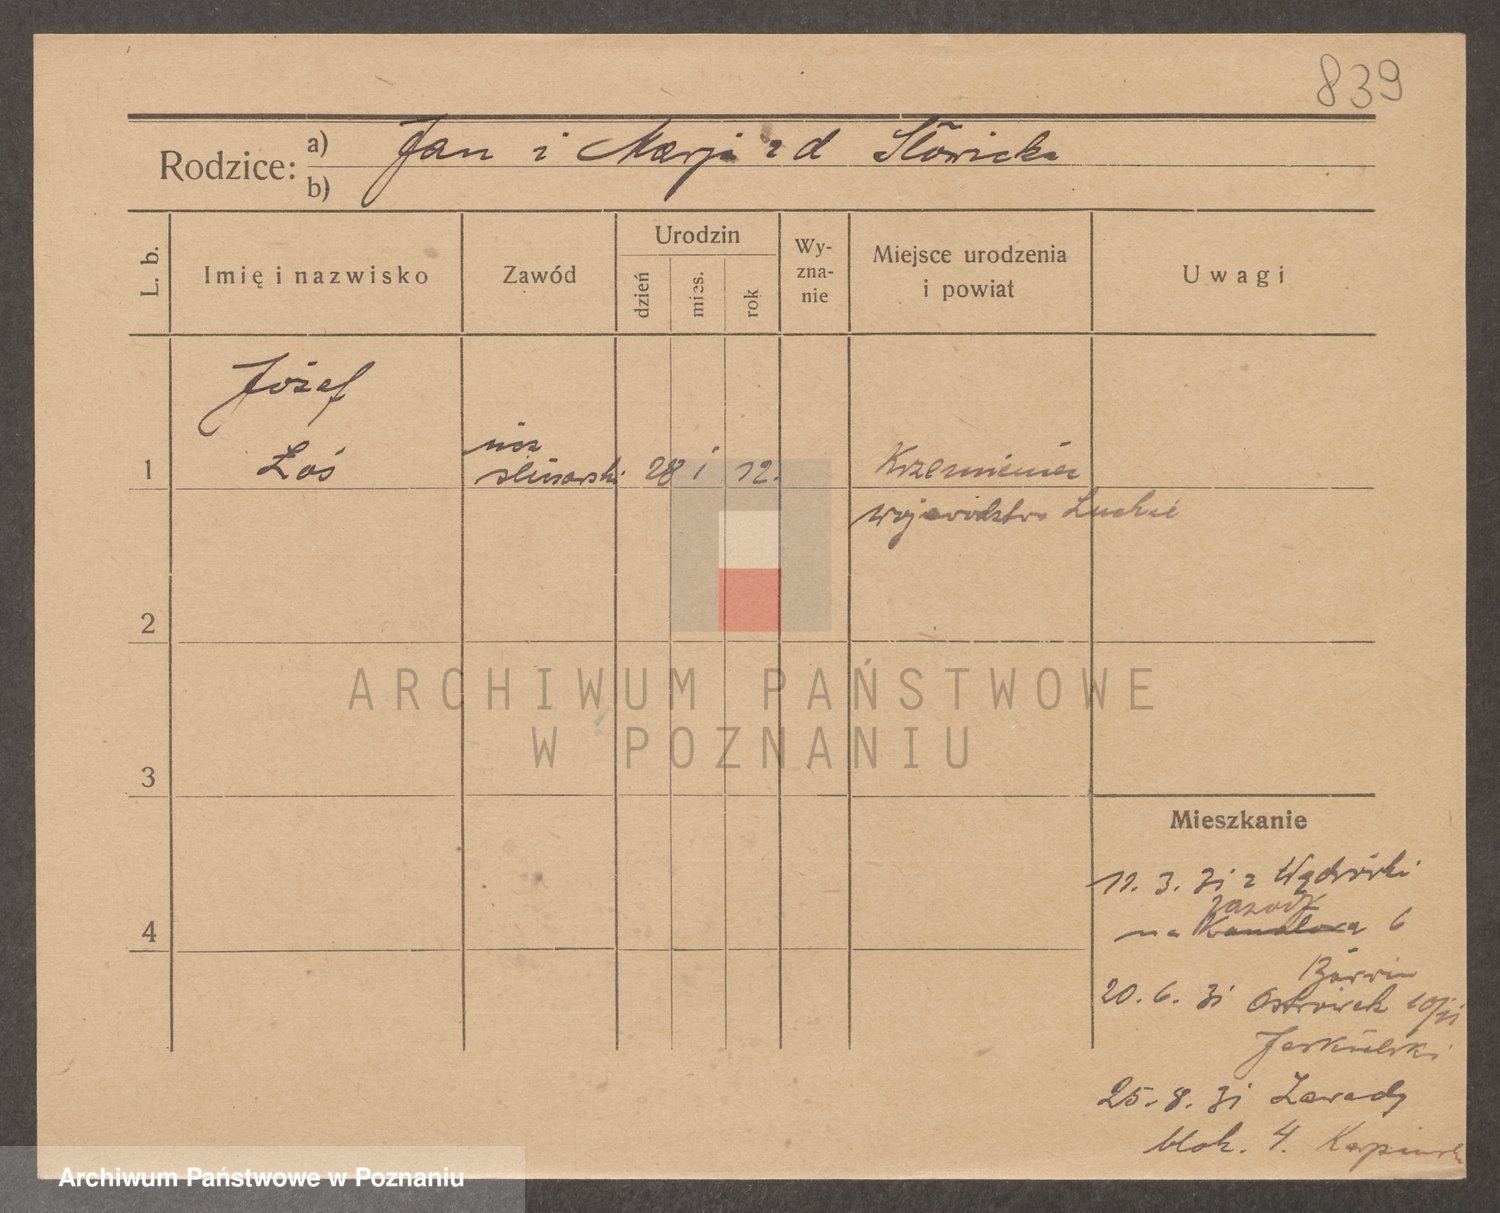 839
Rodzice: a) Jan i Marja z d Słowicka
b)
L. b.
Imię i nazwisko
Zawód
Urodzin
dzień
mies.
rok
Wy-
zna-
nie
Miejsce urodzenia
i powiat
Uwagi
Józef
1 Łoś
ucz
ślusarski 28 1 12.
Krzemieniec
województwo Luckie
2
3
4
Mieszkanie
11. 3. 31 z Wędrówki
na Kanałowa 6
20. 6. 31 Ostrówek 10/11
25. 8. 31 Zawady
blok. 4.
ARCHIWUM PAŃSTWOWE
W POZNANIU
Archiwum Państwowe w Poznaniu